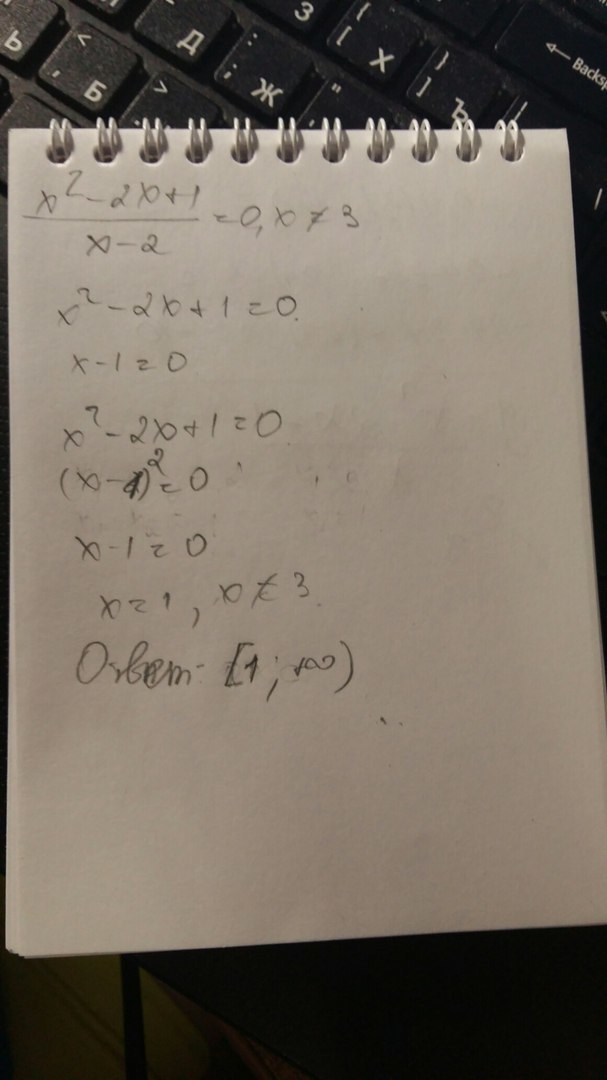 З
Ь
<
,
Б
>
Д
:
;
Ж
"
{
[
Х
}
]
Ъ
|
← Backsp
x² - 2x + 1
x - 2
= 0, x ≠ 3
x² - 2x + 1 = 0.
x - 1 = 0
x² - 2x + 1 = 0
(x - 1)² = 0
x - 1 = 0
x = 1, x ≠ 3.
Ответ: [1; +∞)